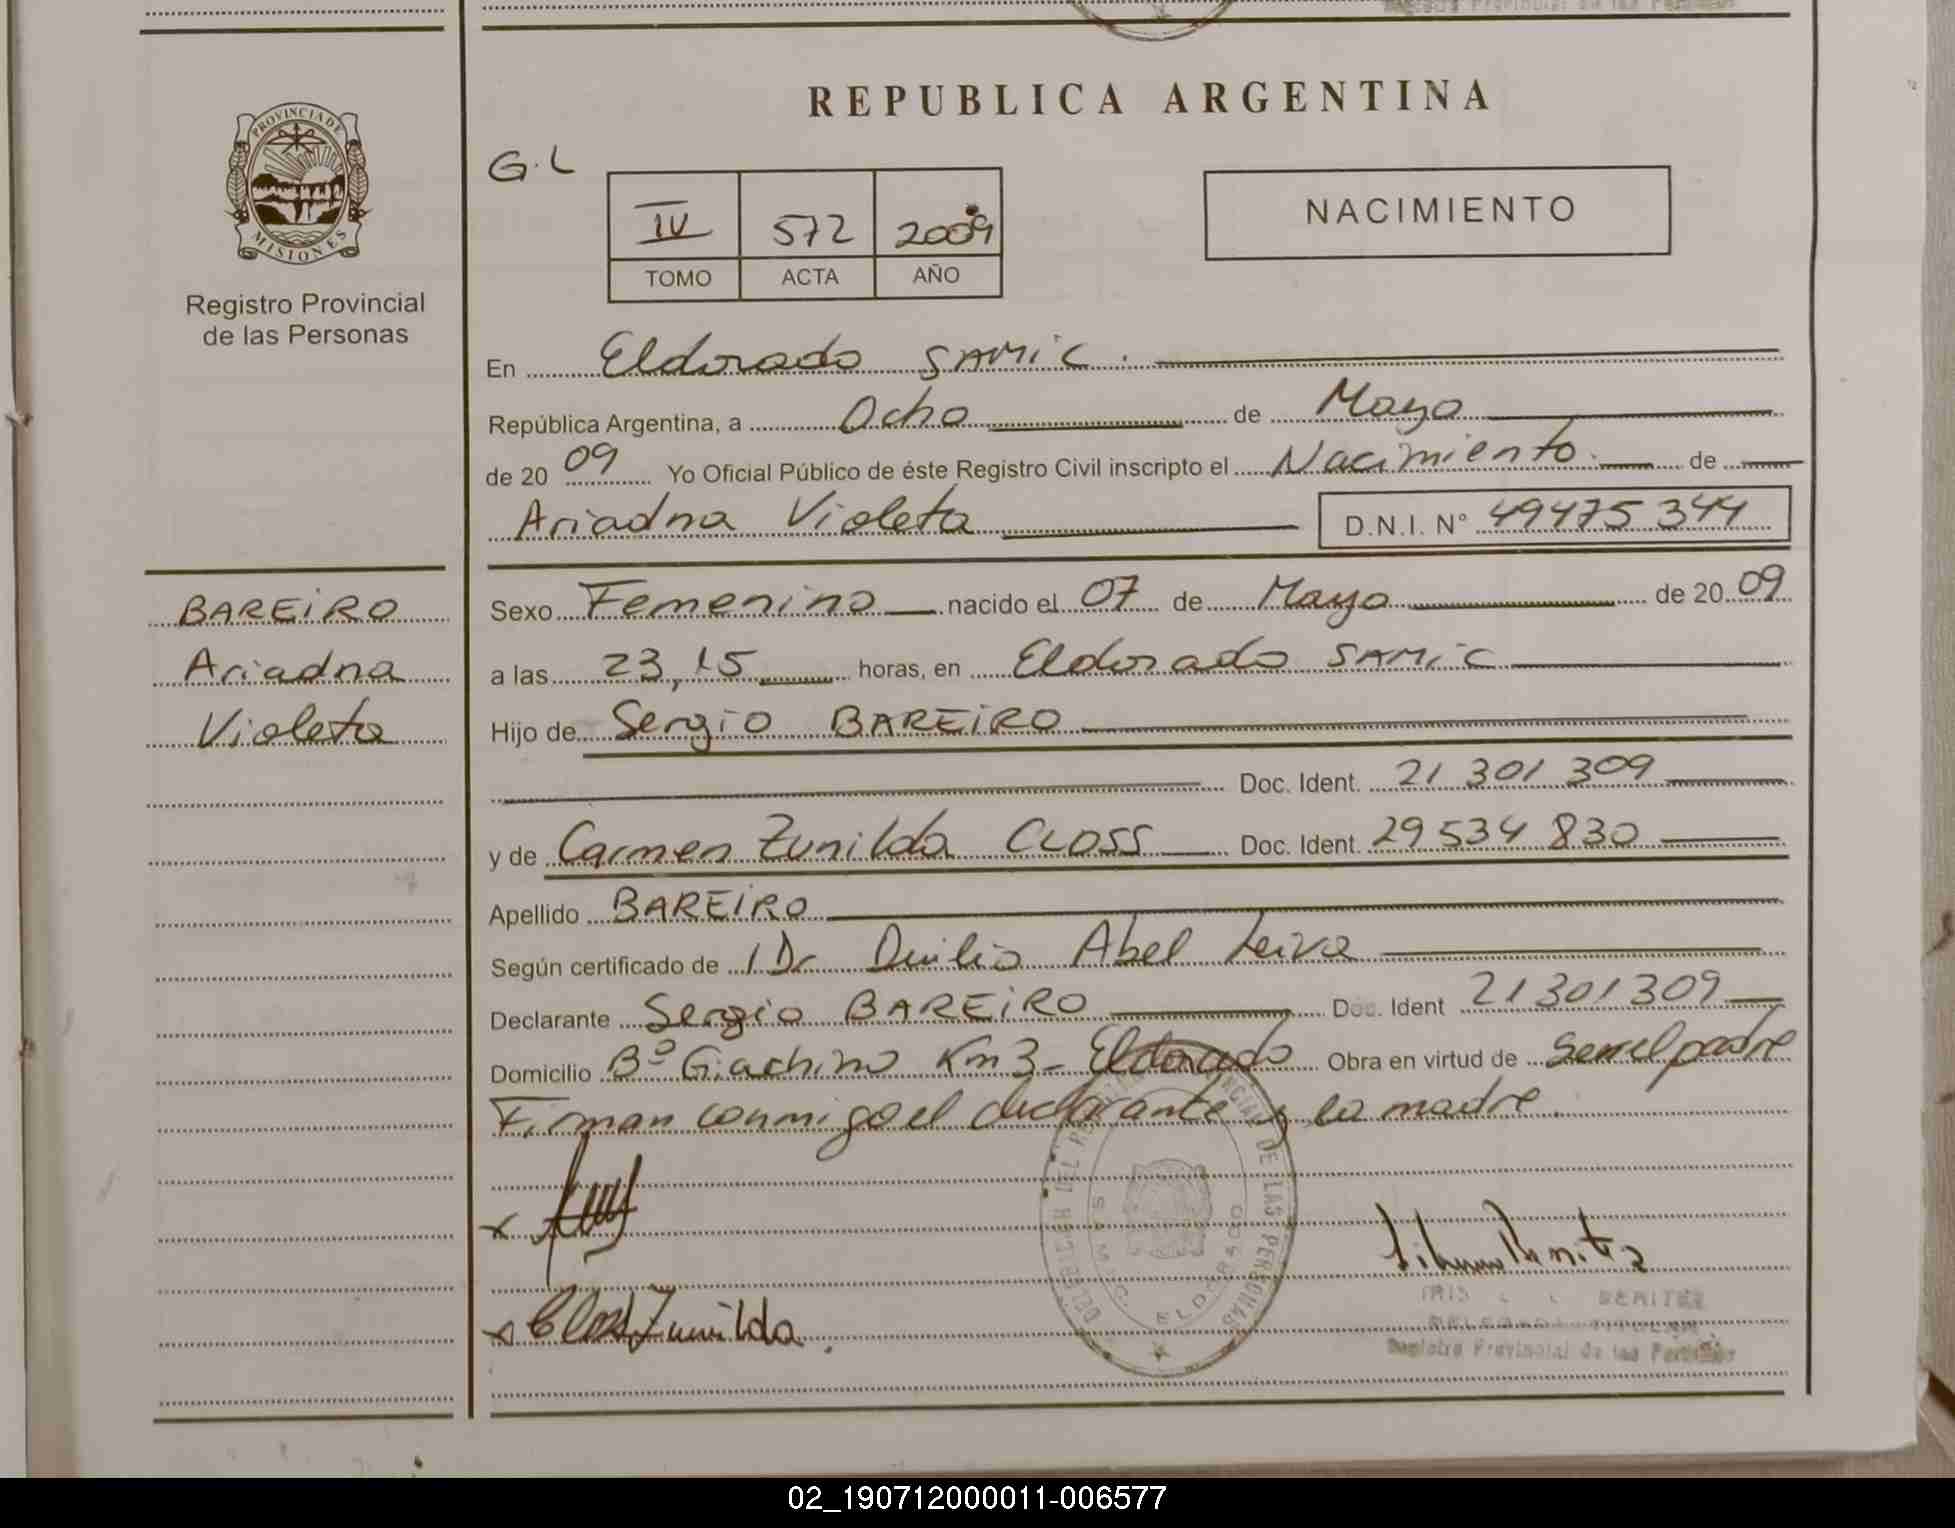 REPUBLICA ARGENTINA
PROVINCIA DE
MISIONES
Registro Provincial
de las Personas
G.L
IV 572 2009
TOMO ACTA AÑO
NACIMIENTO
En Eldorado SAMIC.
República Argentina, a Ocho de Mayo
de 20 09 Yo Oficial Público de éste Registro Civil inscripto el Nacimiento de
Ariadna Violeta D.N.I. N° 49475 344
BAREIRO
Ariadna
Violeta
Sexo Femenino nacido el 07 de Mayo de 20 09
a las 23,15 horas, en Eldorado SAMIC
Hijo de Sergio BAREIRO
Doc. Ident. 21 301 309
y de Carmen Zunilda CLOSS Doc. Ident. 29 534 830
Apellido BAREIRO
Según certificado de 1 Dr Duilio Abel Leiva
Declarante Sergio BAREIRO Doc. Ident 21 301 309
Domicilio B° Giachino Km 3 - Eldorado Obra en virtud de ser el padre
Firman conmigo el declarante y la madre.
x
x Closs Zunilda.
DE LAS PERSONAS
S.A.M.I.C. ELDORADO
BENITEZ
Registro Provincial de las Personas
02_190712000011-006577